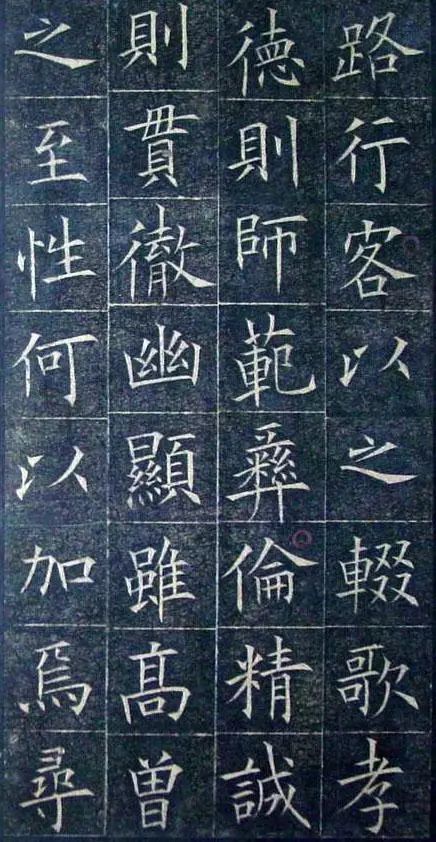 路行客以之輟歌孝
德則師範彝倫精誠
則貫徹幽顯雖高曾
之至性何以加焉尋